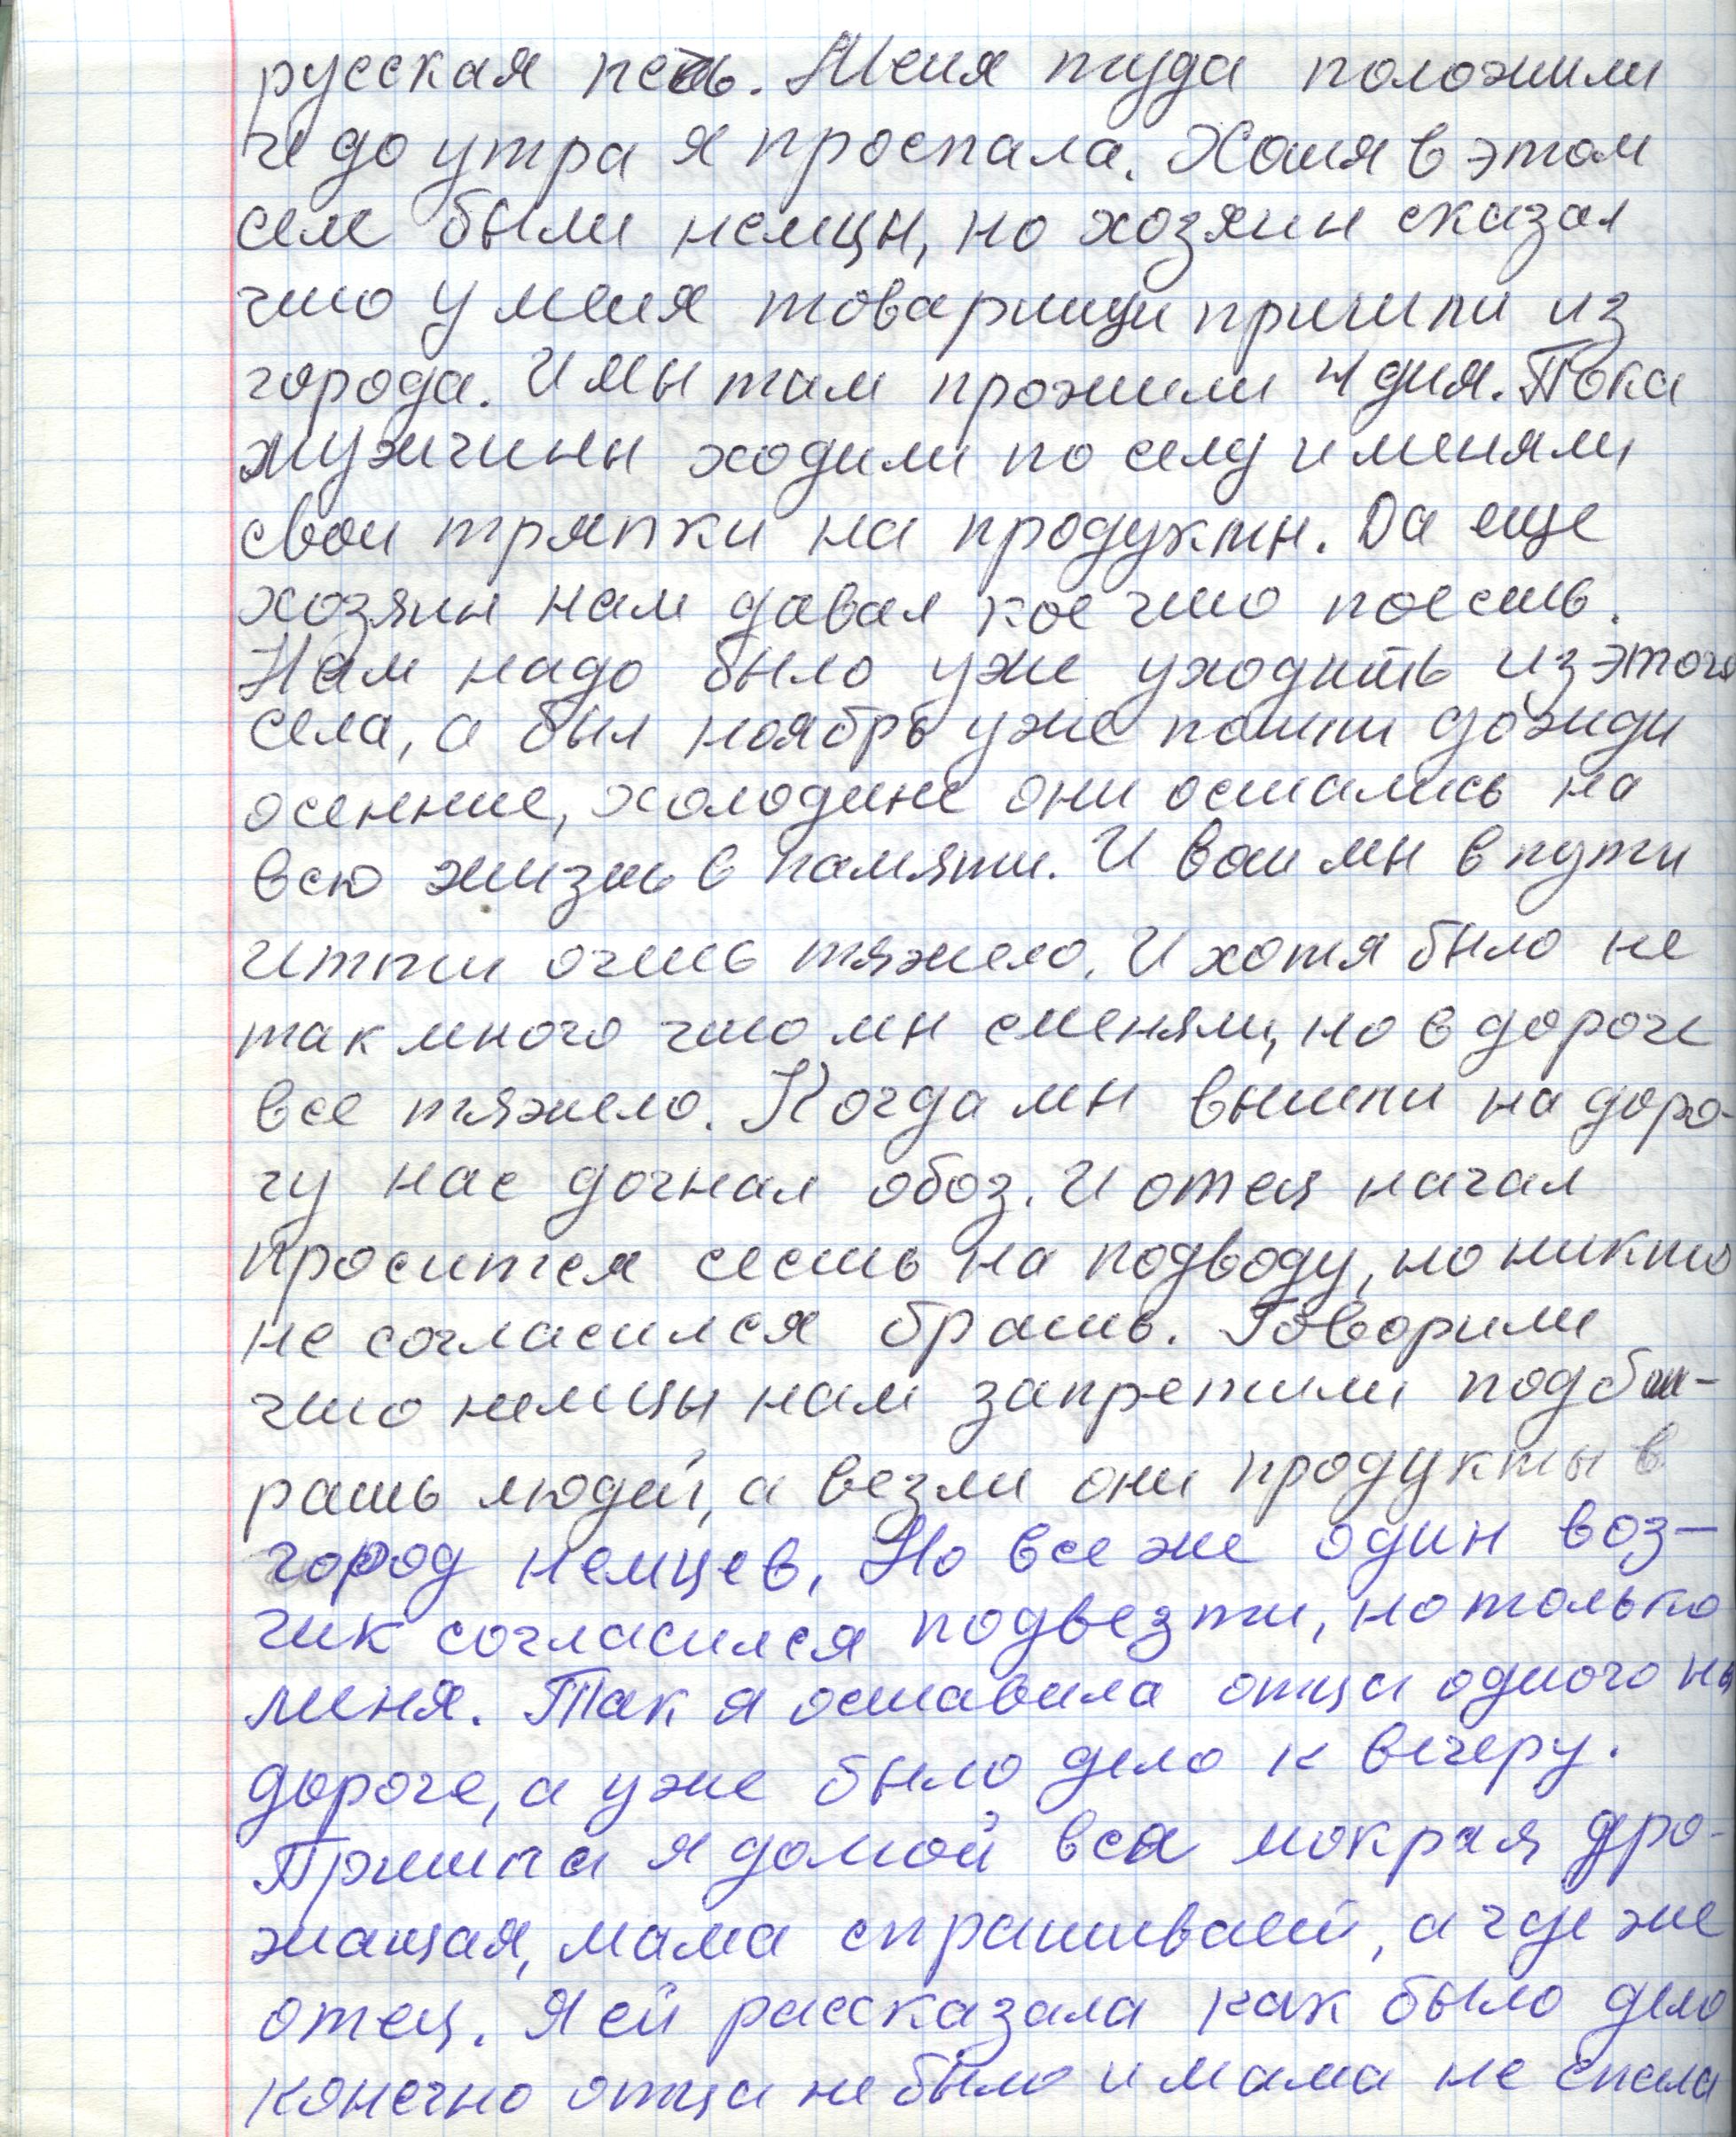 русская печь. Меня туда положили
и до утра я проспала. Хотя в этом
селе были немцы, но хозяин сказал
что у меня товарищи пришли из
города. И мы там прожили 4 дня. Пока
мужчины ходили по селу и меняли
свои тряпки на продукты. Да еще
хозяин нам давал кое что поесть.
Нам надо было уже уходить из этого
села, а был ноябрь уже пошли дожди
осенние, холодные они остались на
всю жизнь в памяти. И вот мы в пути
итти очень тяжело. И хотя было не
так много что мы сменяли, но в дороге
все тяжело. Когда мы вышли на доро-
гу нас догнал обоз. И отец начал
проситися сесть на подводу, но никто
не согласился брать. Говорили
что немцы нам запретили подби-
рать людей, а везли они продукты в
город немцев. Но все же один воз-
чик согласился подвезти, но только
меня. Так я оставила отца одного на
дороге, а уже было дело к вечеру.
Пришла я домой вся мокрая дро-
жащая, мама спрашивает, а где же
отец. Я ей рассказала как было дело
конечно отца не было и мама не спала